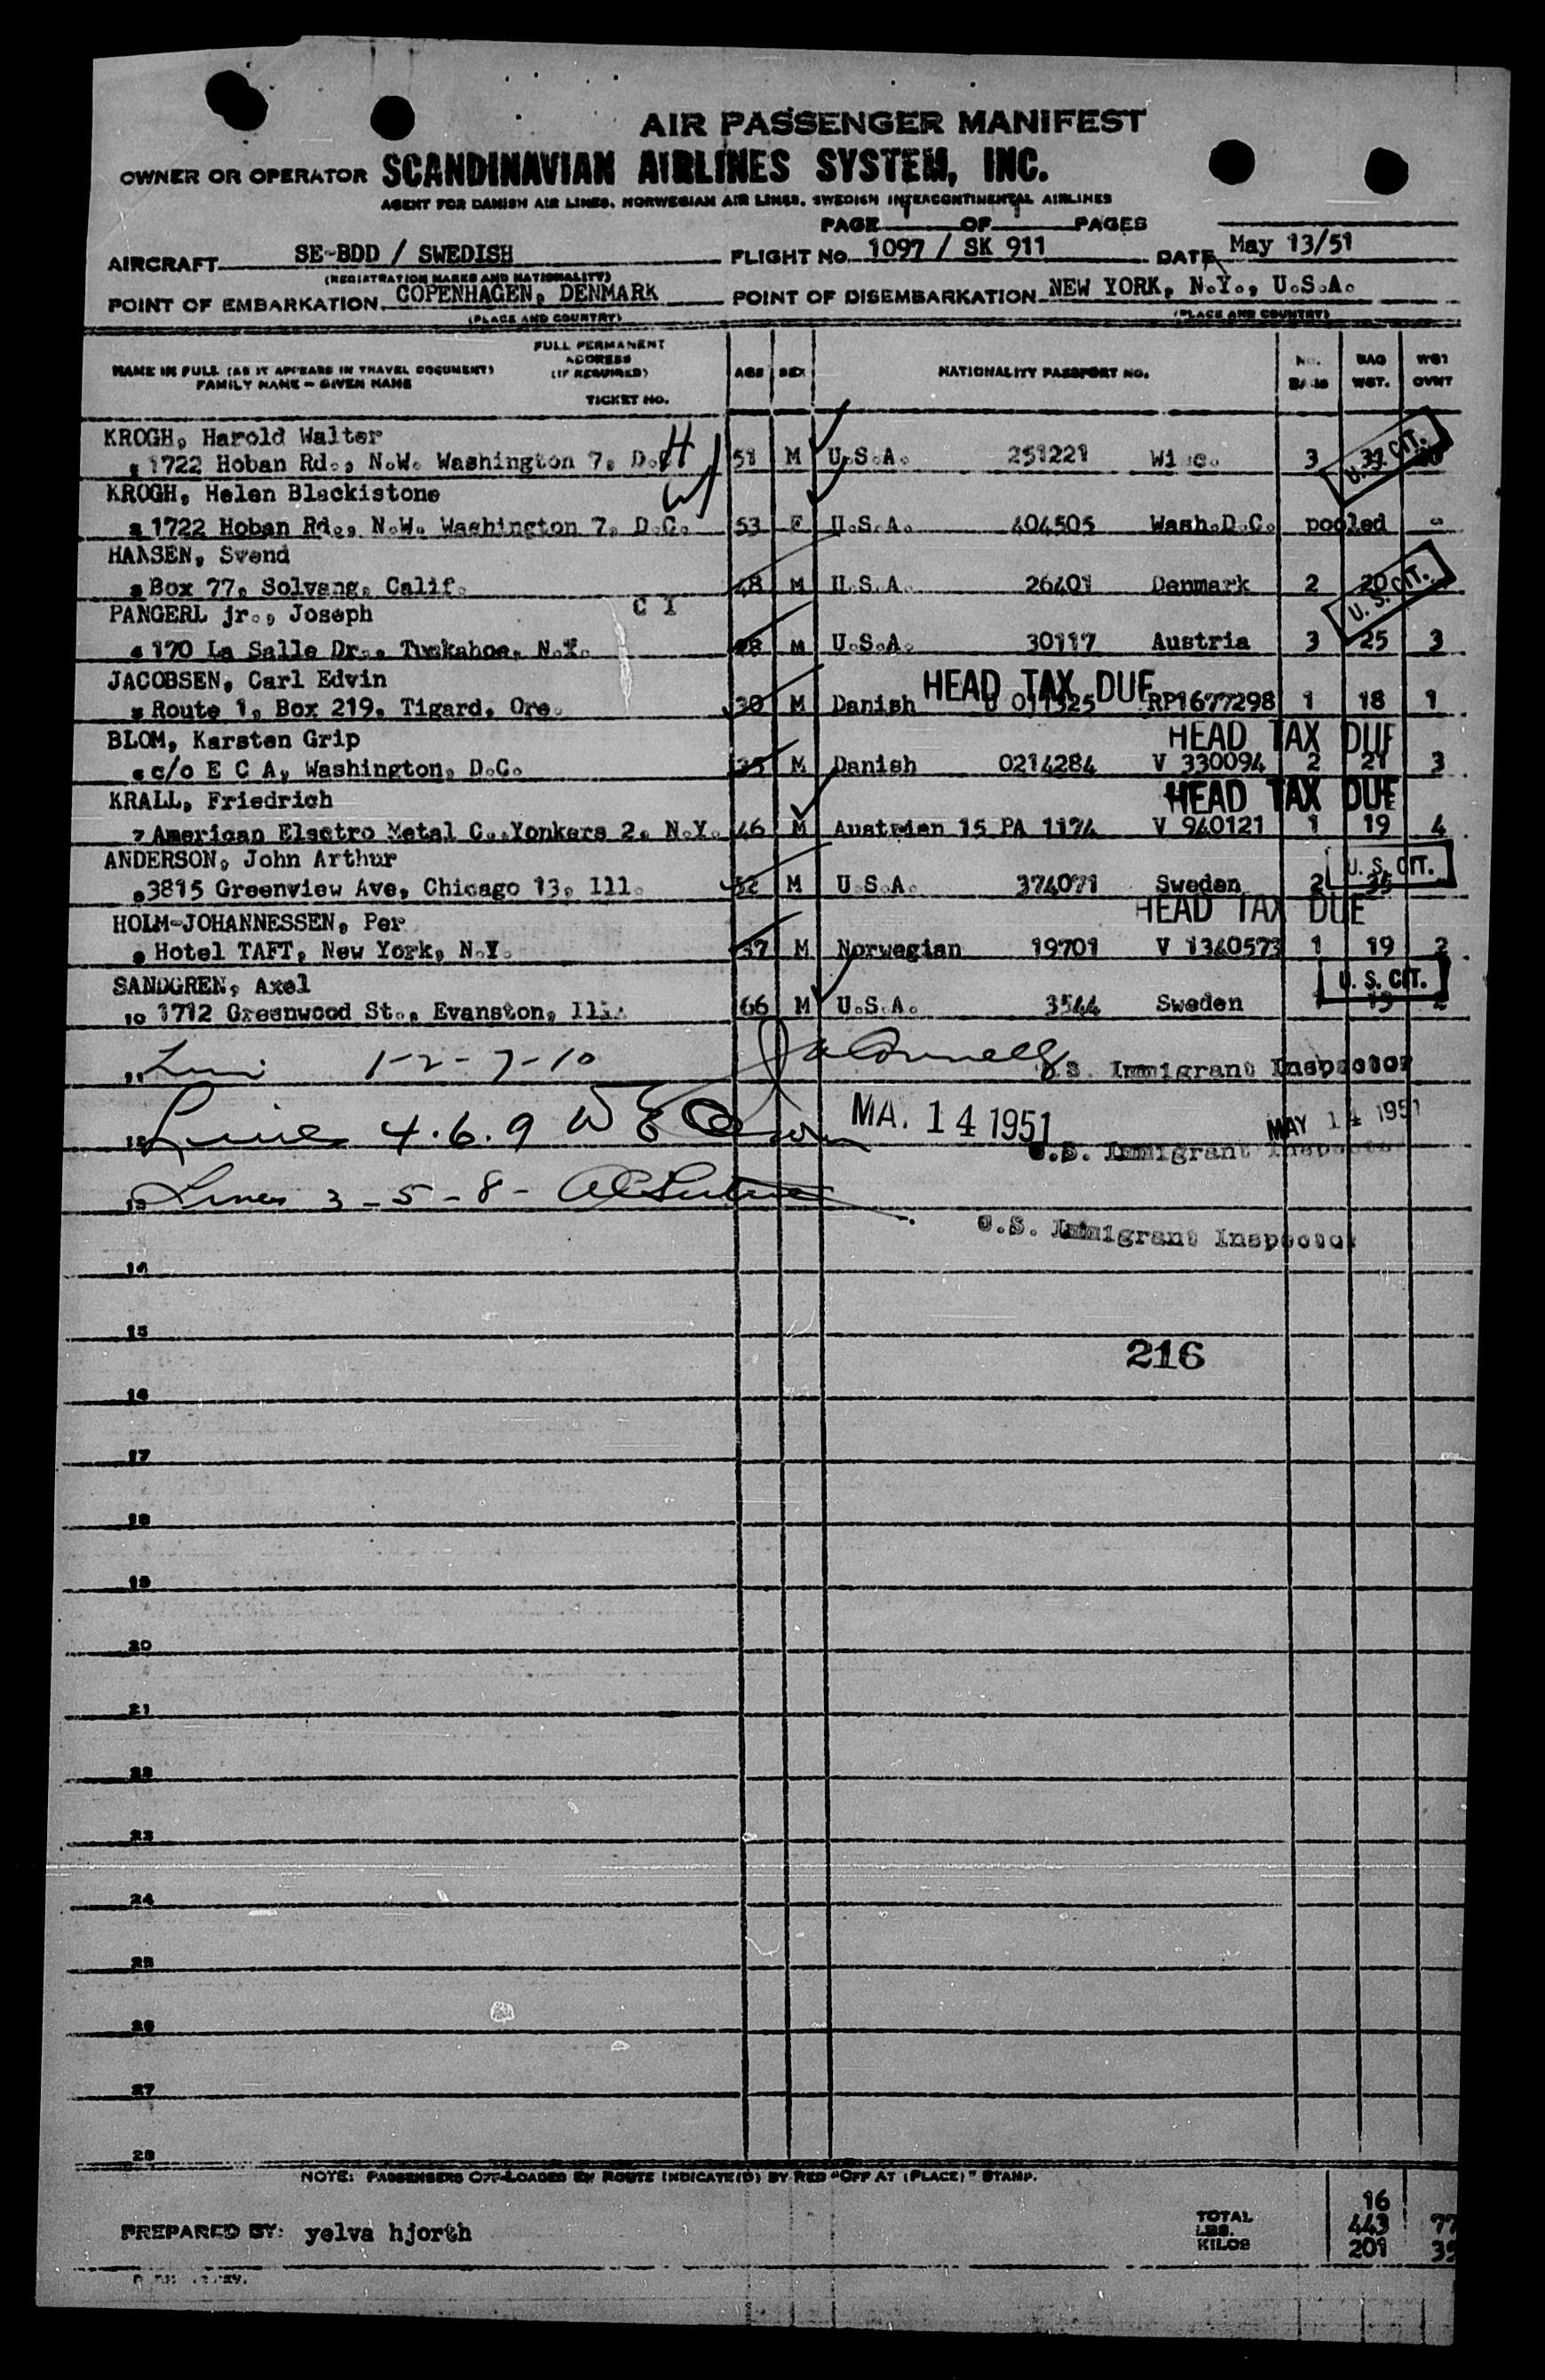 AIR PASSENGER MANIFEST
OWNER OR OPERATOR SCANDINAVIAN AIRLINES SYSTEM, INC.
AGENT FOR DANISH AIR LINES, NORWEGIAN AIR LINES, SWEDISH INTERCONTINENTAL AIRLINES
PAGE 1 OF 1 PAGES
AIRCRAFT SE-BDD / SWEDISH FLIGHT NO. 1097 / SK 911 DATE May 13/51
(REGISTRATION MARKS AND NATIONALITY)
POINT OF EMBARKATION COPENHAGEN, DENMARK POINT OF DISEMBARKATION NEW YORK, N.Y., U.S.A.
(PLACE AND COUNTRY) (PLACE AND COUNTRY)
FULL PERMANENT
ADDRESS
(IF REQUIRED)
NAME IN FULL (AS IT APPEARS IN TRAVEL DOCUMENT)
FAMILY NAME - GIVEN NAME
TICKET NO.
AGE SEX NATIONALITY PASSPORT NO. NO. BAGS BAG WGT. WGT OVWT
KROGH, Harold Walter
1722 Hoban Rd., N.W. Washington 7, D.C. 51 M U.S.A. 251221 3 U.S. CIT.
KROGH, Helen Blackistone
2 1722 Hoban Rd., N.W. Washington 7, D.C. 53 F U.S.A. 404505 Wash.D.C. pooled -
HANSEN, Svend
3 Box 77, Solvang, Calif. 48 M U.S.A. 26401 Denmark 2 20 U.S. CIT.
PANGERL jr., Joseph C I
4 170 La Salle Dr., Tuckahoe, N.Y. M U.S.A. 30117 Austria 3 25 3
JACOBSEN, Carl Edvin HEAD TAX DUE
5 Route 1, Box 219, Tigard, Ore. 30 M Danish RP1677298 1 18 1
BLOM, Karsten Grip HEAD TAX DUE
6 c/o E C A, Washington, D.C. 35 M Danish 0214284 V 330094 2 21 3
KRALL, Friedrich HEAD TAX DUE
7 American Electro Metal C..Yonkers 2, N.Y. 46 M Austrian 15 PA 1174 V 940121 1 19 4
ANDERSON, John Arthur U.S. CIT.
8 3815 Greenview Ave, Chicago 13, Ill. 52 M U.S.A. 374071 Sweden 2 35
HOLM-JOHANNESSEN, Per HEAD TAX DUE
9 Hotel TAFT, New York, N.Y. 37 M Norwegian 19701 V 1340573 1 19 2
SANDGREN, Axel U.S. CIT.
10 1712 Greenwood St., Evanston, Ill. 66 M U.S.A. 3544 Sweden 1 19 2
11 1-2-7-10 U.S. Immigrant Inspector
12 Lines 4.6.9 MA. 14 1951 MAY 14 1951
U.S. Immigrant Inspector
13 Lines 3-5-8-
U.S. Immigrant Inspector
14
15
216
16
17
18
19
20
21
22
23
24
25
26
27
28
NOTE: PASSENGERS OFF-LOADED EN ROUTE INDICATE(D) BY RED "OFF AT (PLACE)" STAMP.
16
PREPARED BY: yelva hjorth TOTAL LBS. 443 77
KILOS 201